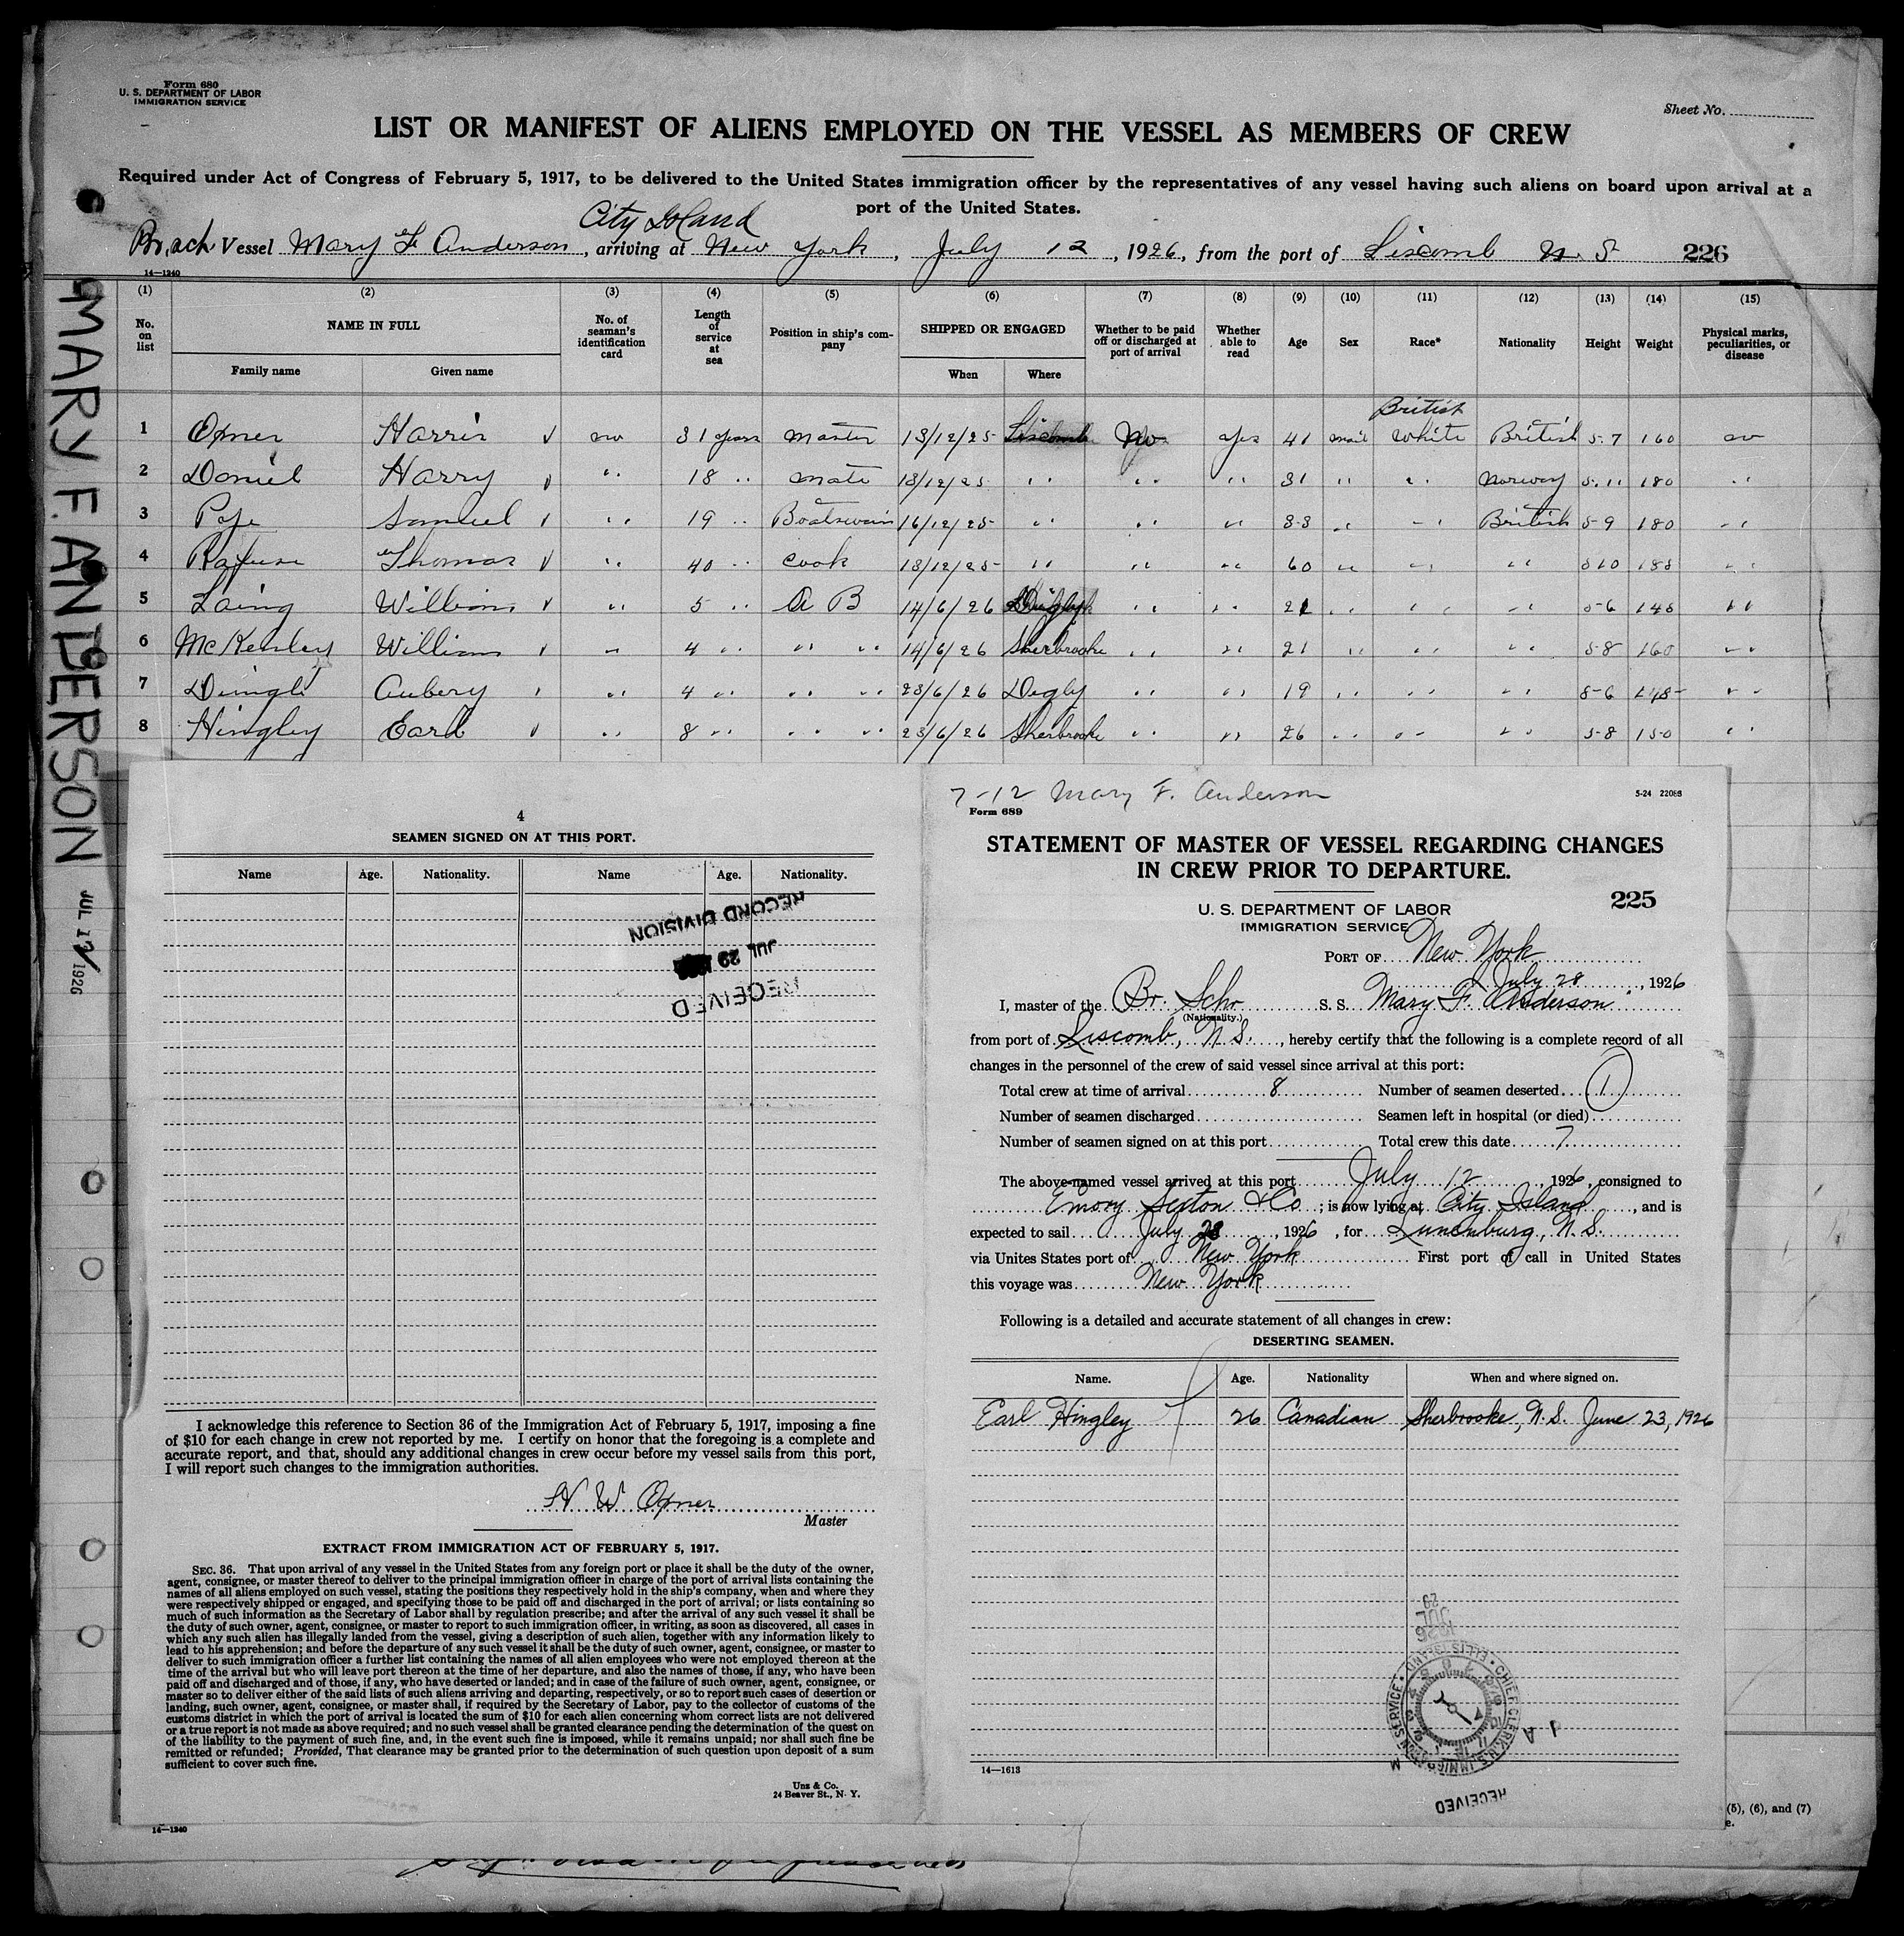 Form 680
U. S. DEPARTMENT OF LABOR
IMMIGRATION SERVICE
Sheet No.
LIST OR MANIFEST OF ALIENS EMPLOYED ON THE VESSEL AS MEMBERS OF CREW
Required under Act of Congress of February 5, 1917, to be delivered to the United States immigration officer by the representatives of any vessel having such aliens on board upon arrival at a
port of the United States.
City Island
Vessel Mary F Anderson, arriving at New York, July 12, 1926, from the port of Liscomb N. S 226
14—1240
(1) (2) (3) (4) (5) (6) (7) (8) (9) (10) (11) (12) (13) (14) (15)
No. on list NAME IN FULL No. of seaman's identification card Length of service at sea Position in ship's company SHIPPED OR ENGAGED Whether to be paid off or discharged at port of arrival Whether able to read Age Sex Race* Nationality Height Weight Physical marks, peculiarities, or disease
Family name Given name When Where
British
1 Harris no 31 years master 13/12/25 Liscomb No yes 41 male white British 5-7 160 no
2 Daniel Harry " 18 " mate 13/12/25 " " " 31 " " Norway 5-11 180 "
3 Pope Samuel " 19 " Boatswain 16/12/25 " " " 33 " " British 5-9 180 "
4 Rafuse Thomas " 40 " cook 13/12/25 " " " 60 " " " 5 10 "
5 Laing William " 5 " A B 14/6/26 " " 21 " " " 5-6 "
6 William " 4 " " " 14/6/26 Sherbrooke " " 21 " " " 5-8 160 "
7 Aubery " 4 " " " 23/6/26 Digby " " 19 " " " "
8 Hingley Earl " 8 " " " 23/6/26 Sherbrooke " " 26 " " " 5-8 150 "
MARY F. ANDERSON
JUL 12 1926
4
SEAMEN SIGNED ON AT THIS PORT.
Name Age. Nationality. Name Age. Nationality.
RECORD DIVISION
JUL 29
RECEIVED
I acknowledge this reference to Section 36 of the Immigration Act of February 5, 1917, imposing a fine
of $10 for each change in crew not reported by me. I certify on honor that the foregoing is a complete and
accurate report, and that, should any additional changes in crew occur before my vessel sails from this port,
I will report such changes to the immigration authorities.
H W
Master
EXTRACT FROM IMMIGRATION ACT OF FEBRUARY 5, 1917.
SEC. 36. That upon arrival of any vessel in the United States from any foreign port or place it shall be the duty of the owner,
agent, consignee, or master thereof to deliver to the principal immigration officer in charge of the port of arrival lists containing the
names of all aliens employed on such vessel, stating the positions they respectively hold in the ship's company, when and where they
were respectively shipped or engaged, and specifying those to be paid off and discharged in the port of arrival; or lists containing so
much of such information as the Secretary of Labor shall by regulation prescribe; and after the arrival of any such vessel it shall be
the duty of such owner, agent, consignee, or master to report to such immigration officer, in writing, as soon as discovered, all cases in
which any such alien has illegally landed from the vessel, giving a description of such alien, together with any information likely to
lead to his apprehension; and before the departure of any such vessel it shall be the duty of such owner, agent, consignee, or master to
deliver to such immigration officer a further list containing the names of all alien employees who were not employed thereon at the
time of the arrival but who will leave port thereon at the time of her departure, and also the names of those, if any, who have been
paid off and discharged and of those, if any, who have deserted or landed; and in case of the failure of such owner, agent, consignee, or
master so to deliver either of the said lists of such aliens arriving and departing, respectively, or so to report such cases of desertion or
landing, such owner, agent, consignee, or master shall, if required by the Secretary of Labor, pay to the collector of customs of the
customs district in which the port of arrival is located the sum of $10 for each alien concerning whom correct lists are not delivered
or a true report is not made as above required; and no such vessel shall be granted clearance pending the determination of the quest on
of the liability to the payment of such fine, and, in the event such fine is imposed, while it remains unpaid; nor shall such fine be
remitted or refunded; Provided, That clearance may be granted prior to the determination of such question upon deposit of a sum
sufficient to cover such fine.
Unz & Co.
24 Beaver St., N. Y.
14—1240
7-12 Mary F. Anderson
5-24
Form 689
STATEMENT OF MASTER OF VESSEL REGARDING CHANGES
IN CREW PRIOR TO DEPARTURE.
225
U. S. DEPARTMENT OF LABOR
IMMIGRATION SERVICE
PORT OF New York
July 28, 1926
I, master of the Br. Schr. S. S. Mary F. Anderson
(Nationality.)
from port of Liscomb, N. S., hereby certify that the following is a complete record of all
changes in the personnel of the crew of said vessel since arrival at this port:
Total crew at time of arrival 8 Number of seamen deserted 1
Number of seamen discharged Seamen left in hospital (or died)
Number of seamen signed on at this port Total crew this date 7
The above-named vessel arrived at this port July 12, 1926, consigned to
Emory Sexton & Co; is now lying at City Island, and is
expected to sail July 28, 1926, for Lunenburg, N. S.
via Unites States port of New York First port of call in United States
this voyage was New York
Following is a detailed and accurate statement of all changes in crew:
DESERTING SEAMEN.
Name. Age. Nationality When and where signed on.
Earl Hingley 26 Canadian Sherbrooke, N. S. June 23, 1926
29
JUL
1926
CHIEF CLERK, U.S. IMMIGRATION SERVICE • ELLIS ISLAND •
RECEIVED
14—1613
(5), (6), and (7)
e.